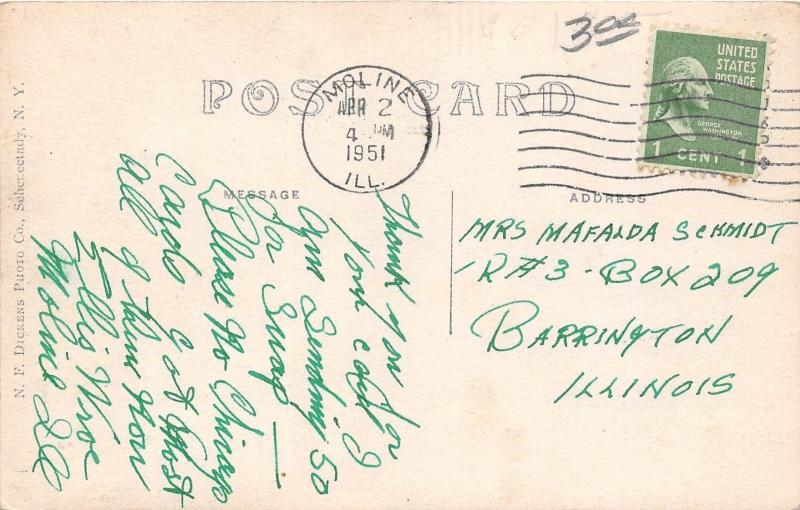 3 00
UNITED
STATES
POSTAGE
GEORGE
WASHINGTON
1 CENT 1
POST CARD
MOLINE
APR 2
4 PM
1951
ILL.
MESSAGE
ADDRESS
Thank you for
your card I
am Sending 50
for Swap —
Please No Chicago
Cards Got Most
all of them now
Ellis Wroe
Moline Ill
MRS MAFALDA SCHMIDT
R#3 - BOX 209
BARRINGTON
ILLINOIS
N. F. DICKENS PHOTO CO., Schenectady, N. Y.